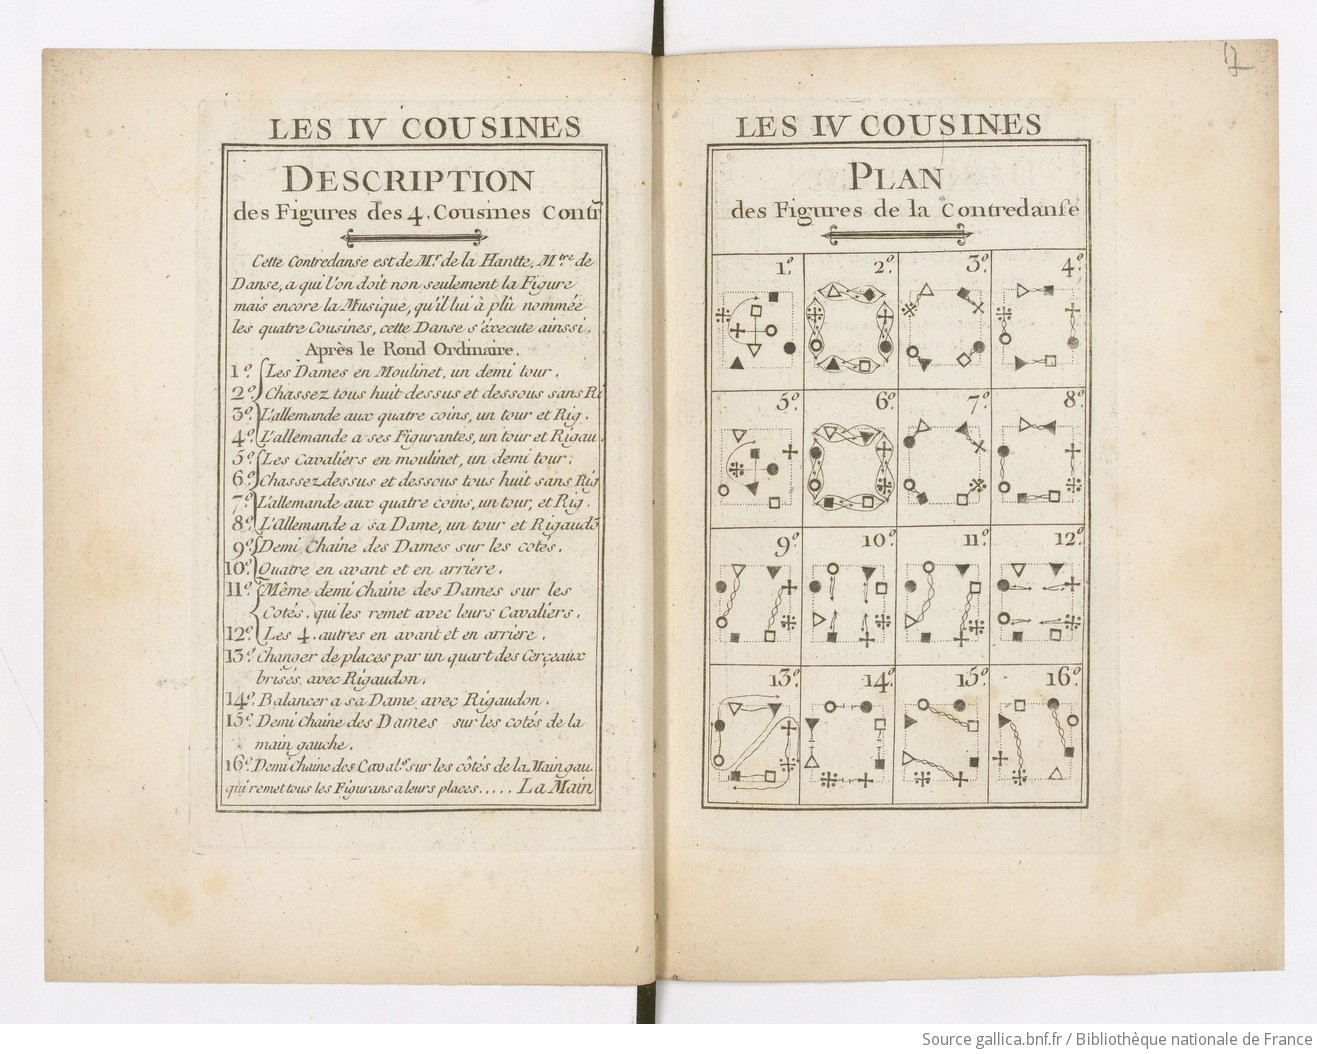 LES IV COUSINES
DESCRIPTION
des Figures des 4. Cousines Contr̃
Cette Contredanse est de Mr. de la Hantte, Mtre. de
Danse, a qui l'on doit non seulement la Figure
mais encore la Musique, qu'il lui à plû nommée
les quatre Cousines, cette Danse s'éxecute ainssi.
Après le Rond Ordinaire.
1º. Les Dames en Moulinet, un demi tour.
2º. Chassez tous huit dessus et dessous sans Ri
3º. L'allemande aux quatre coins, un tour et Rig.
4º. L'allemande a ses Figurantes, un tour et Rigau.
5º. Les Cavaliers en moulinet, un demi tour.
6º. Chassez dessus et dessous tous huit sans Rig
7º. L'allemande aux quatre coins, un tour, et Rig.
8º. L'Allemande a sa Dame, un tour et Rigaudõ
9º. Demi Chaine des Dames sur les cotés.
10º. Quatre en avant et en arriere.
11º. Même demi Chaine des Dames sur les
Cotés, qui les remet avec leurs Cavaliers.
12º. Les 4. autres en avant et en arriere.
13º. Changer de places par un quart des Cerçeaux
brisés, avec Rigaudon.
14º. Balancer a sa Dame avec Rigaudon.
15º. Demi Chaine des Dames sur les cotés de la
main gauche.
16º. Demi Chaine des Caval.rs sur les côtés de la Main gau.
qui remet tous les Figurans a leurs places..... La Main
17
LES IV COUSINES
PLAN
des Figures de la Contredanse
1º. 2º. 3º. 4º.
5º. 6º. 7º. 8º.
9º. 10º. 11º. 12º.
13º. 14º. 15º. 16º.
Source gallica.bnf.fr / Bibliothèque nationale de France